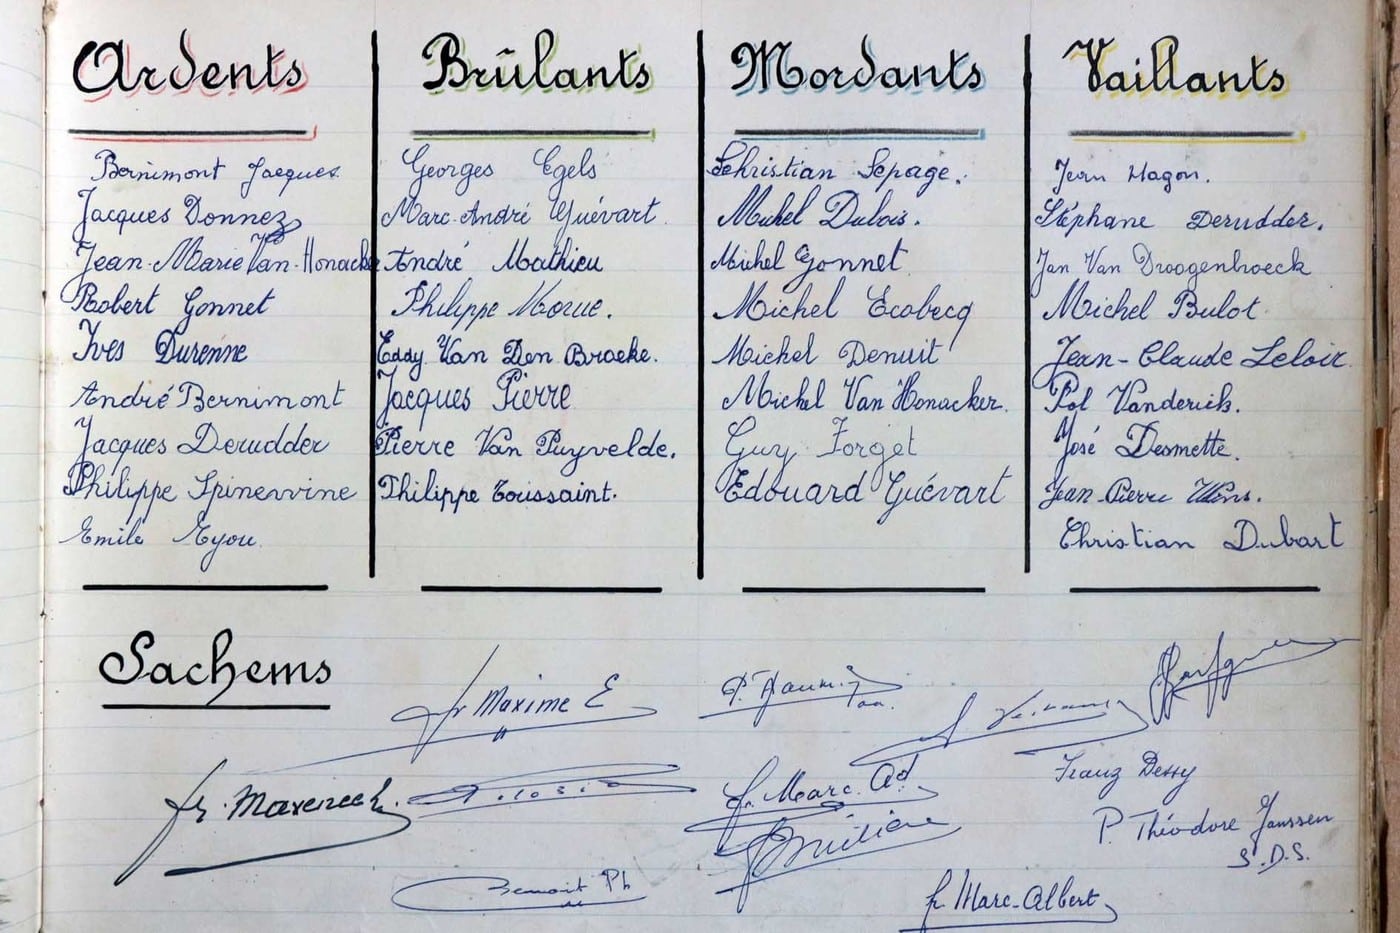 Ardents
Bernimont Jacques
Jacques Donnez
Jean-Marie Van-Honacker
Robert Gonnet
Yves Durenne
André Bernimont
Jacques Derudder
Philippe Spinewine
Emile Eyou.
Brûlants
Georges Egels
Marc-André Guévart
André Mathieu
Philippe Morue.
Eddy Van Den Broeke.
Jacques Pierre
Pierre Van Puyvelde.
Philippe Toussaint.
Mordants
Schristian Lepage.
Michel Dubois.
Michel Gonnet
Michel Ecobecq
Michel Denuit
Michel Van Honacker.
Guy Forget
Edouard Guévart
Vaillants
Jean Hagon.
Stéphane Derudder.
Jan Van Droogenbroeck
Michel Bulot
Jean-Claude Leloir
Pol Vanderick.
José Desmette.
Jean-Pierre
Christian Dubart
Sachems
fr Maxime E
P.
fr.
fr. Marc. Ad.
Franz Dessy
P. Théodore Janssen
S.D.S.
Benoit Ph
fr Marc-Albert